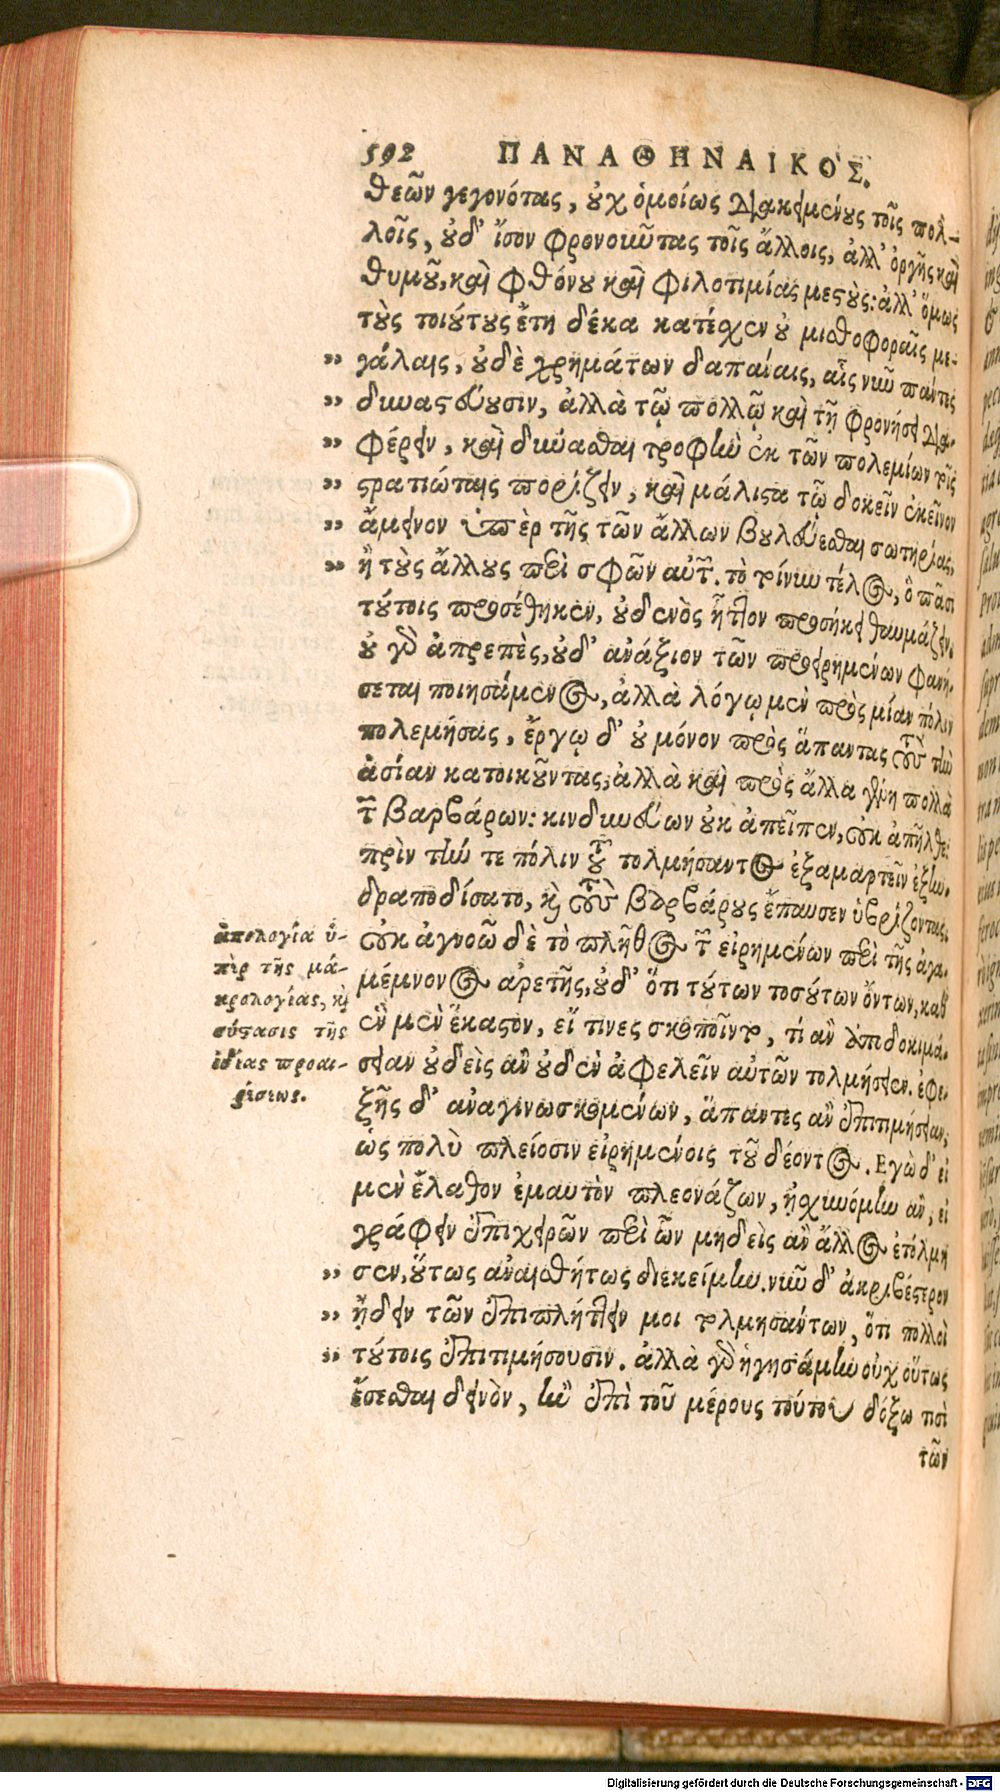 592 ΠΑΝΑΘΗΝΑΙΚΟΣ.
θεῶν γεγονότας, οὐχ ὁμοίως διακειμένους τοῖς πολ-
λοῖς, οὐδ' ἴσον φρονοῦντας τοῖς ἄλλοις, ἀλλ' ὀργῆς καὶ
θυμοῦ, καὶ φθόνου καὶ φιλοτιμίας μεστούς: ἀλλ' ὅμως
τοὺς τοιούτους ἔτη δέκα κατέσχεν οὐ μισθοφοραῖς με-
„ γάλαις, οὐδὲ χρημάτων δαπάναις, αἷς νῦν πάντες
„ δυναστεύουσιν, ἀλλὰ τῷ πολλῷ καὶ τῇ φρονήσει δια-
„ φέρειν, καὶ δύνασθαι τροφὴν ἐκ τῶν πολεμίων τοῖς
„ στρατιώταις πορίζειν, καὶ μάλιστα τῷ δοκεῖν ἐκεῖνον
„ ἄμεινον ὑπὲρ τῆς τῶν ἄλλων βουλεύεσθαι σωτηρίας,
„ ἢ τοὺς ἄλλους περὶ σφῶν αὐτῶν. τὸ τοίνυν τέλος, ὃ πᾶσι
τούτοις προσέθηκεν, οὐδενὸς ἧττον προσήκει θαυμάζειν.
οὐ γὰρ ἀπρεπὲς, οὐδ' ἀνάξιον τῶν προειρημένων φανή-
σεται ποιησάμενος, ἀλλὰ λόγῳ μὲν πρὸς μίαν πόλιν
πολεμήσας, ἔργῳ δ' οὐ μόνον πρὸς ἅπαντας τοὺς τὴν
ἀσίαν κατοικοῦντας, ἀλλὰ καὶ πρὸς ἄλλα γένη πολλὰ
τῶν βαρβάρων: κινδυνεύων οὐκ ἀπεῖπεν, οὐκ ἀπῆλθε
πρὶν τήν τε πόλιν τοῦ τολμήσαντος ἐξαμαρτεῖν ἐξην-
δραποδίσατο, καὶ τοὺς βαρβάρους ἔπαυσεν ὑβρίζοντας.
οὐκ ἀγνοῶ δὲ τὸ πλῆθος τῶν εἰρημένων περὶ τῆς ἀγα-
μέμνονος ἀρετῆς, οὐδ' ὅτι τούτων τοσούτων ὄντων, καθ'
ἓν μὲν ἕκαστον, εἴ τινες σκοποῖντο, τί ἂν ἀποδοκιμά-
σειαν οὐδεὶς ἂν οὐδὲν ἀφελεῖν αὐτῶν τολμήσειεν. ἐφε-
ξῆς δ' ἀναγινωσκομένων, ἅπαντες ἂν ἐπιτιμήσειαν,
ὡς πολὺ πλείοσιν εἰρημένοις τοῦ δέοντος. Εγὼ δ' εἰ
μὲν ἔλαθον ἐμαυτὸν πλεονάζων, ᾐχυνόμην ἂν, εἰ
γράφειν ἐπιχειρῶν περὶ ὧν μηδεὶς ἂν ἄλλος ἐτόλμη
„ σεν, οὕτως ἀναισθήτως διεκείμην. νῦν δ' ἀκριβέστερον
„ ᾔδειν τῶν ἐπιπλήττειν μοι τολμησάντων, ὅτι πολλοὶ
„ τούτοις ἐπιτιμήσουσιν. ἀλλὰ γὰρ ἡγησάμην οὐχ οὕτως
ἔσεσθαι δεινὸν, ἢν ἐπὶ τοῦ μέρους τούτου δόξω τισὶ
τῶν
ἀπολογία ὑ-
πὲρ τῆς μα-
κρολογίας, καὶ
σύστασις τῆς
ἰδίας προαι-
ρέσεως.
Digitalisierung gefördert durch die Deutsche Forschungsgemeinschaft - DFG